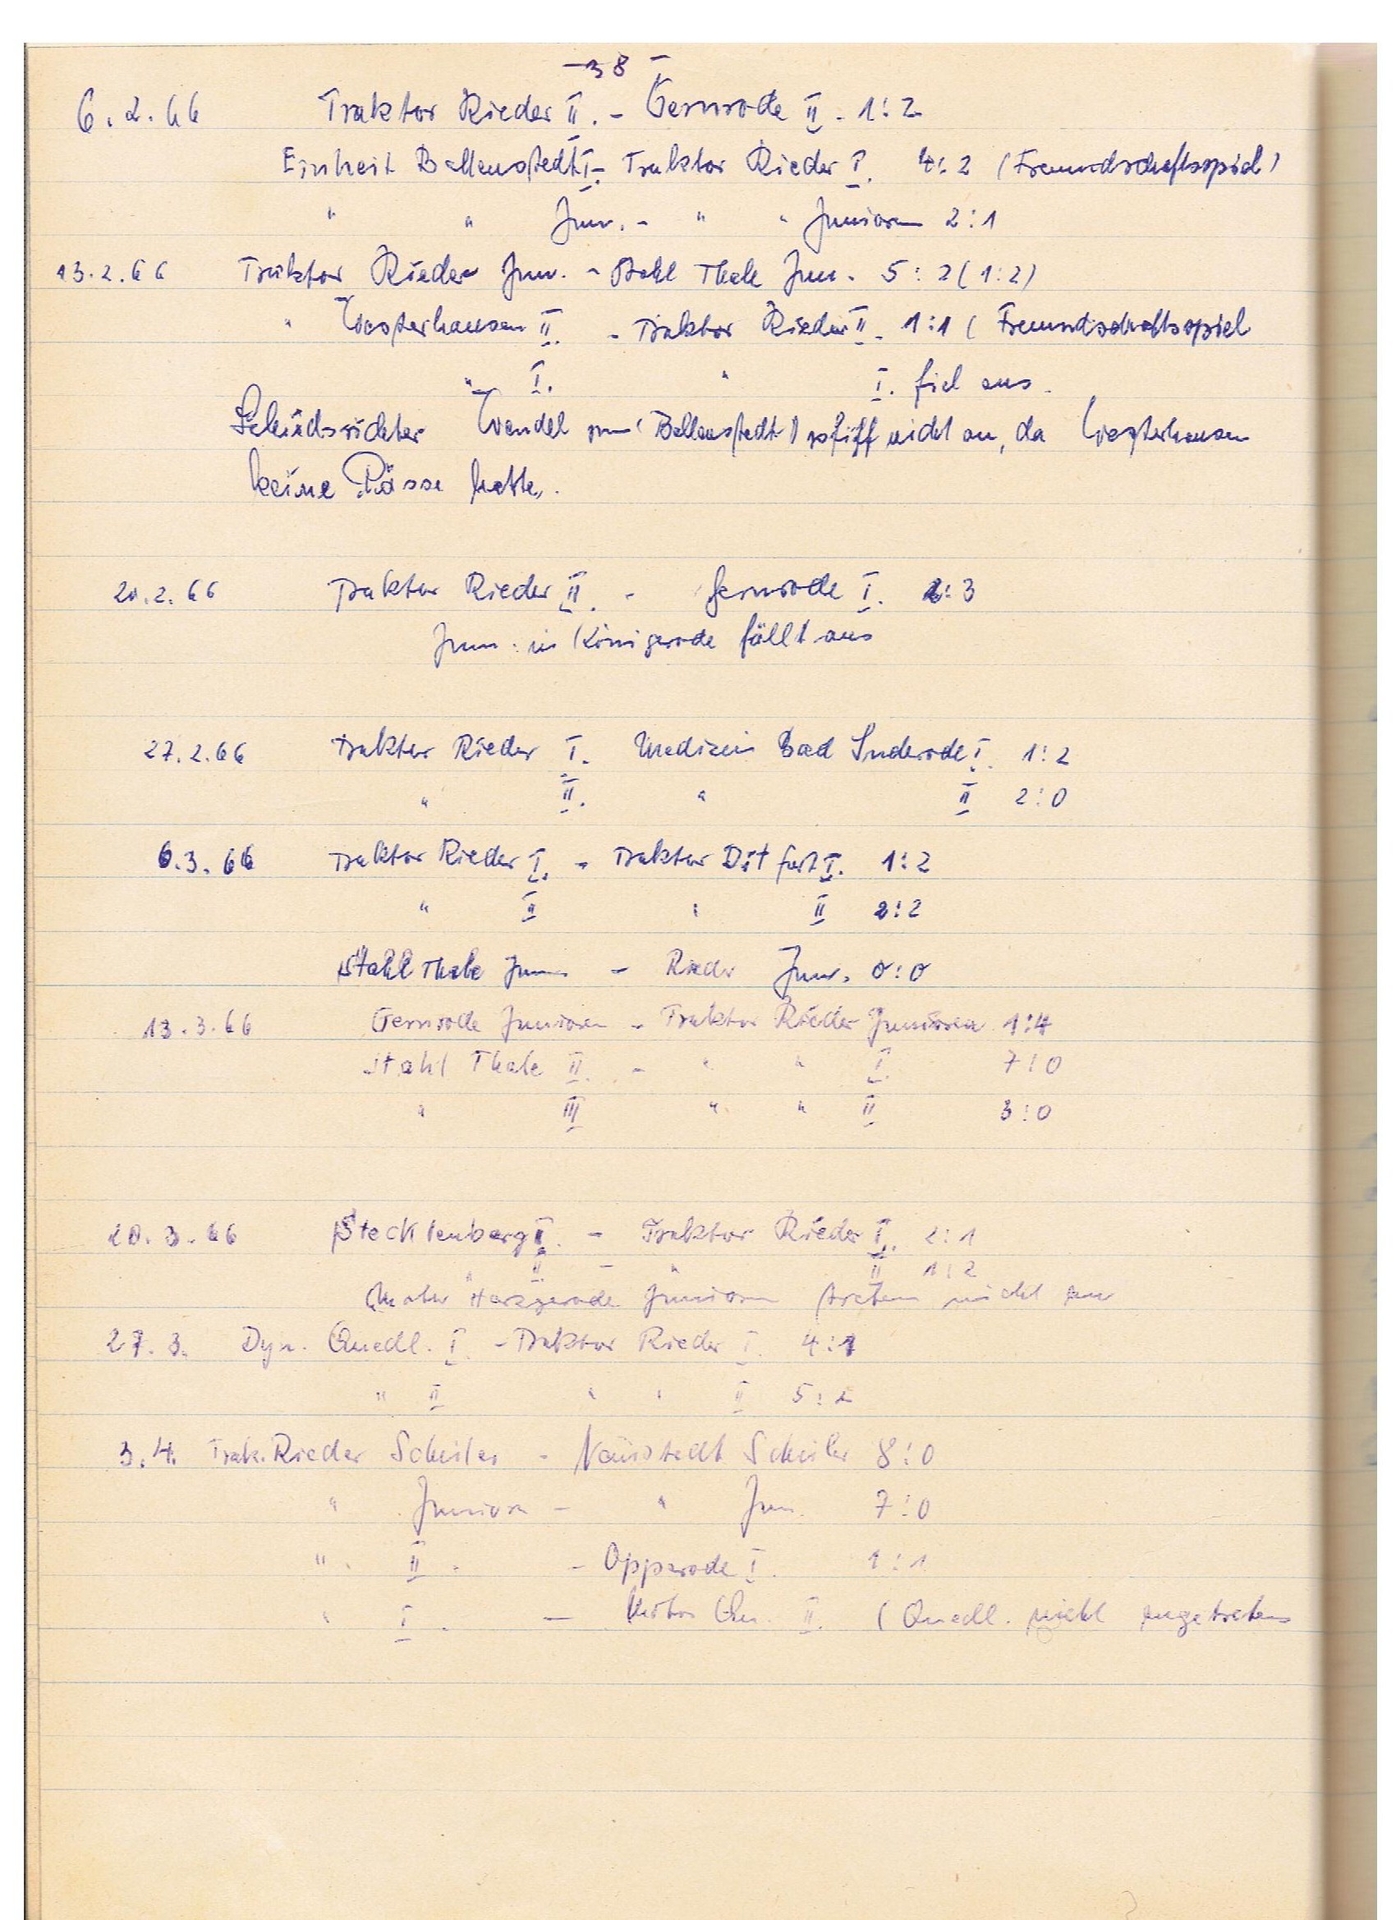 - 38 -
6.2.66 Traktor Rieder II. - Gernrode II - 1:2
Einheit Ballenstedt I. - Traktor Rieder I. 4:2 (Freundschaftsspiel)
" " Jun. - " " Junioren 2:1
13.2.66 Traktor Rieder Jun. - Stahl Thale Jun. 5:2 (1:2)
" Westerhausen II. - Traktor Rieder II. 1:1 (Freundschaftsspiel
" I. " I. fiel aus.
Schiedsrichter Wendel (Ballenstedt) pfiff nicht an, da Westerhausen
keine Pässe hatte.
20.2.66 Traktor Rieder II. - Gernrode I. 2:3
Jun. in Königerode fällt aus
27.2.66 Traktor Rieder I. Medizin Bad Suderode I. 1:2
" II. " II 2:0
6.3.66 Traktor Rieder I. - Traktor Ditfurt I. 1:2
" II " II 2:2
Stahl Thale Jun. - Rieder Jun. 0:0
13.3.66 Gernrode Junioren - Traktor Rieder Junioren 1:4
Stahl Thale II. - " " I. 7:0
" III " " II 3:0
20.3.66 Stecklenberg I. - Traktor Rieder I. 2:1
" II. - " II 1:2
Harzgerode Junioren treten nicht an
27.3. Dyn. Quedl. I. - Traktor Rieder I. 4:1
" II " " II 5:2
3.4. Trak. Rieder Schüler - Neinstedt Schüler 8:0
" Junioren - " Jun. 7:0
" . II . - Opperode I. 1:1
" I . - Motor Qu. II. (Quedl. nicht angetreten